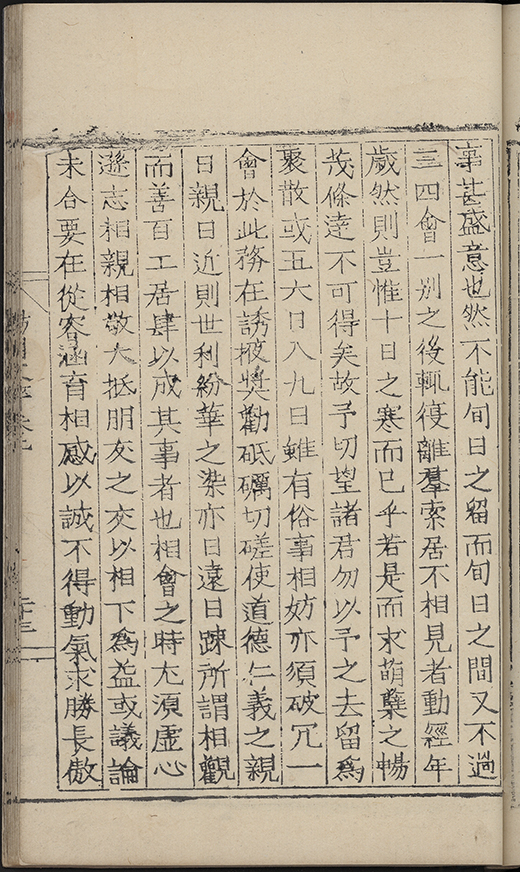 事甚盛意也然不能旬日之留而旬日之間又不過
三四會一別之後輒復離羣索居不相見者動經年
歲然則豈惟十日之寒而已乎若是而求萌蘖之暢
茂條達不可得矣故予切望諸君勿以予之去留爲
聚散或五六日八九日雖有俗事相妨亦須破冗一
會於此務在誘掖奬勸砥礪切磋使道德仁義之親
日親日近則世利紛華之染亦日遠日踈所謂相觀
而善百工居肆以成其事者也相會之時尤須虛心
遜志相親相敬大抵朋友之交以相下爲益或議論
未合要在從容涵育相感以誠不得動氣求勝長傲